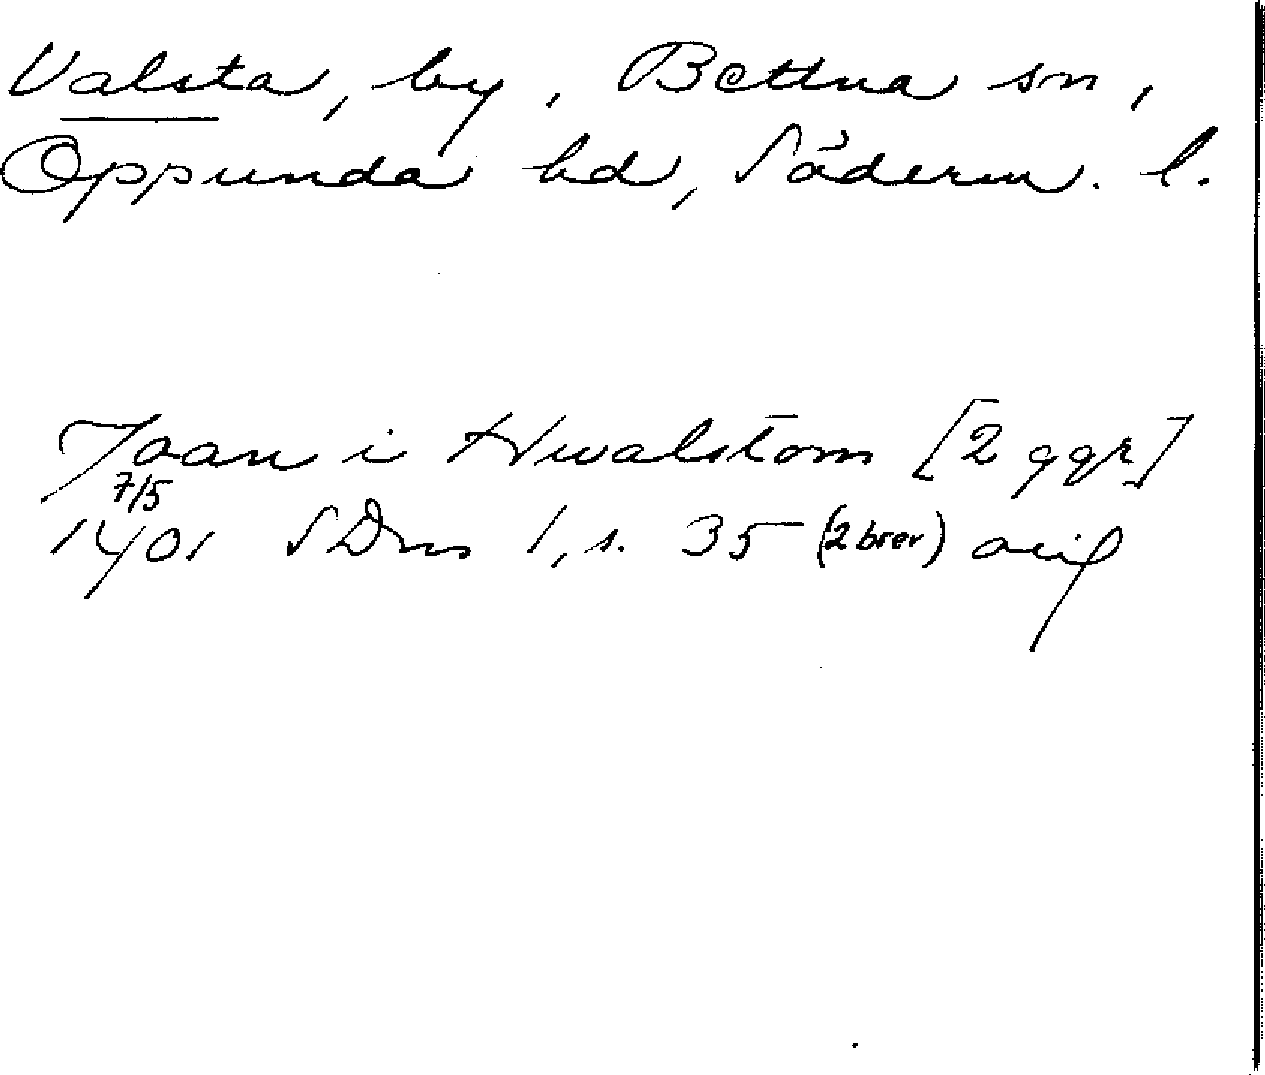 Valsta, by, Bettna sn,
Oppunda hd, Söderm. l.
Joan i Hwalstom [2 ggr]
7/5
1401 SDns 1, s. 35 (2 brev) avif